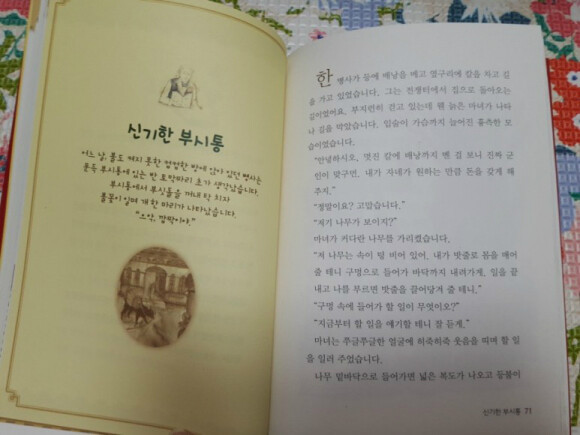 신기한 부시통
어느 날, 불도 켜지 못한 깜깜한 방에 앉아 있던 병사는
문득 부시통에 있는 반 토막짜리 초가 생각났습니다.
부시통에서 부싯돌을 꺼내 탁 치자
불꽃이 일며 개 한 마리가 나타났습니다.
"으악, 깜짝이야."
한 병사가 등에 배낭을 메고 옆구리에 칼을 차고 길
을 가고 있었습니다. 그는 전쟁터에서 집으로 돌아오는
길이었어요. 부지런히 걷고 있는데 웬 늙은 마녀가 나타
나 길을 막았습니다. 입술이 가슴까지 늘어진 흉측한 모
습이었습니다.
"안녕하시오, 멋진 칼에 배낭까지 멘 걸 보니 진짜 군
인이 맞구먼. 내가 자네가 원하는 만큼 돈을 갖게 해
주지."
"정말이요? 고맙습니다."
"저기 나무가 보이지?"
마녀가 커다란 나무를 가리켰습니다.
"저 나무는 속이 텅 비어 있어. 내가 밧줄로 몸을 매어
줄 테니 구멍으로 들어가 바닥까지 내려가게. 일을 끝
내고 나를 부르면 밧줄을 끌어당겨 줄 테니."
"구멍 속에 들어가 할 일이 무엇이오?"
"지금부터 할 일을 얘기할 테니 잘 듣게."
마녀는 쭈글쭈글한 얼굴에 히죽히죽 웃음을 띠며 할 일
을 일러 주었습니다.
나무 밑바닥으로 들어가면 넓은 복도가 나오고 등불이
신기한 부시통 71